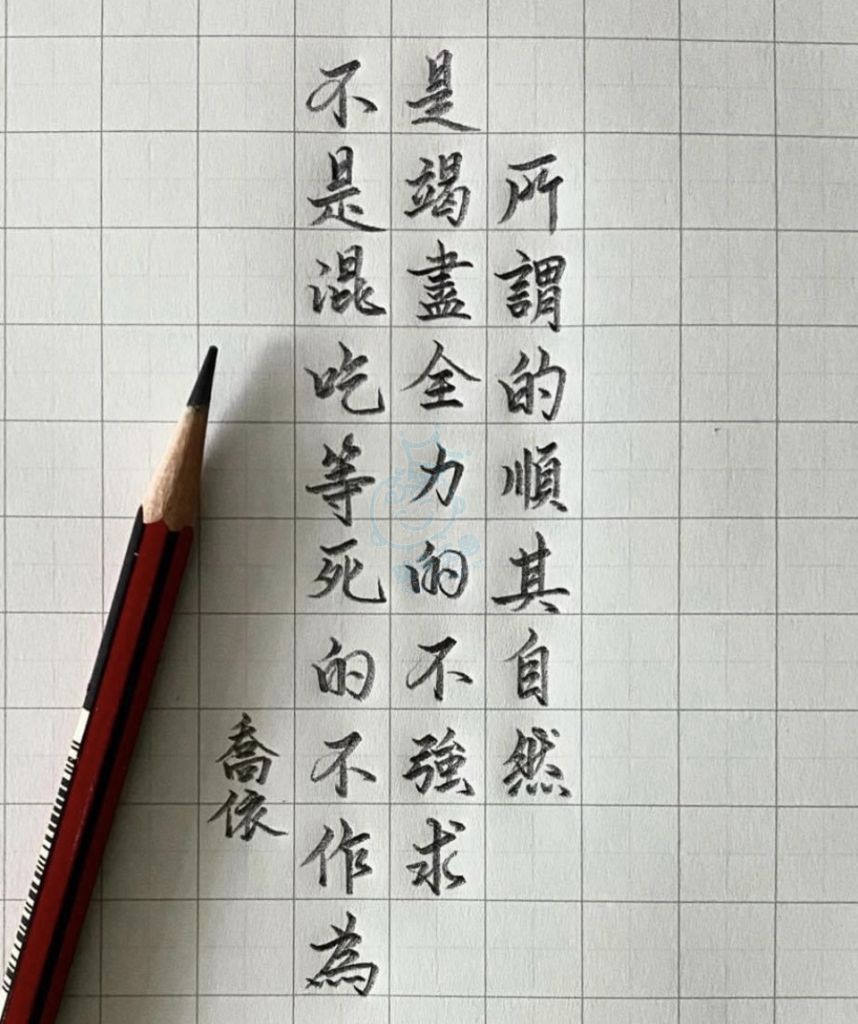 所謂的順其自然
是竭盡全力的不強求
不是混吃等死的不作為
喬依